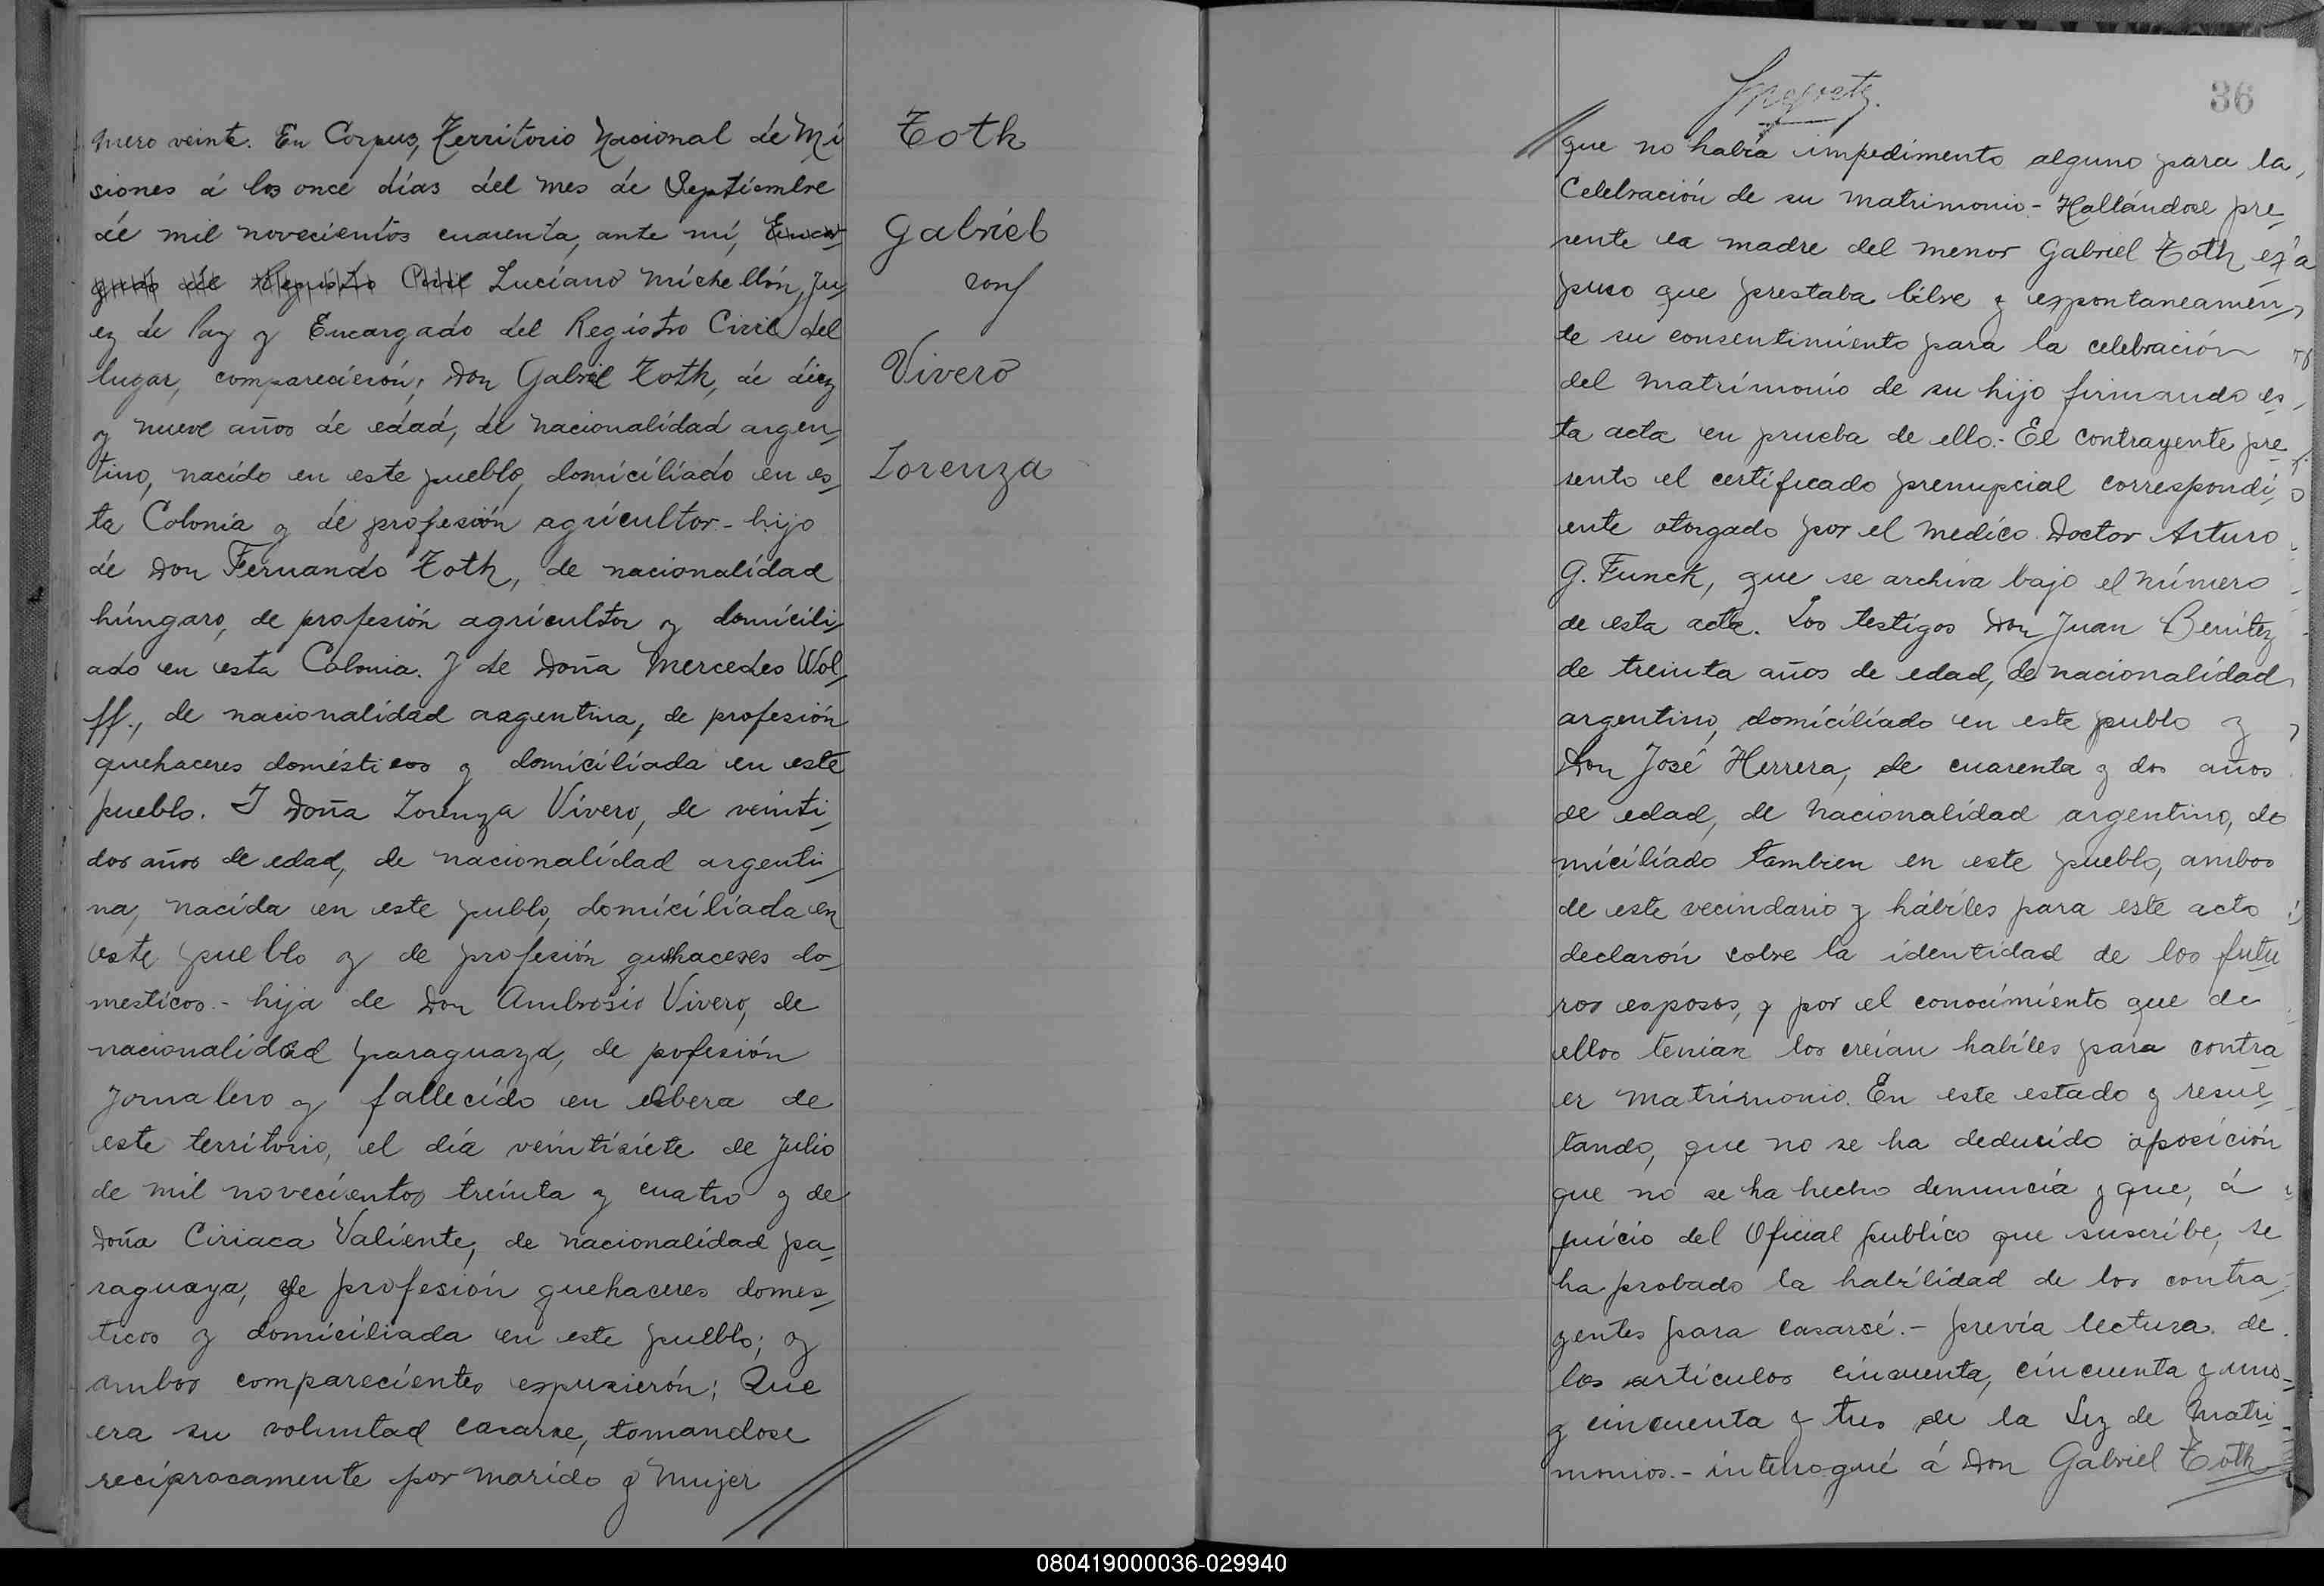 mero veinte. En Corpus, Territorio Nacional de Mi
siones á los once días del mes de Septiembre
de mil novecientos cuarenta, ante mí, Encar
gado del Registro Civil Luciano Michellón, Ju
ez de Paz y Encargado del Registro Civil del
lugar, comparecierón; Don Gabriel Toth, de diez
y nueve años de edad, de nacionalidad argen
tino, nacido en este pueblo, domiciliado en es
ta Colonia y de profesión agricultor - hijo
de Don Fernando Toth, de nacionalidad
húngaro, de profesión agricultor y domicili
ado en esta Colonia. Y de Doña Mercedes Wol
ff., de nacionalidad aagentina, de profesión
quehaceres domésticos y domiciliada en este
pueblo. Y Doña Lorenza Vivero, de veinti
dos años de edad, de nacionalidad argenti
na, nacida en este publo, domiciliada en
este pueblo y de profesión quehaceres do
mesticos. - hija de Don Ambrosio Vivero, de
nacionalidad paraguaya, de pofesión
Jornalero y fallecido en Obera de
este territorio, el día veintisiete de Julio
de mil novecientos treinta y cuatro y de
Doña Ciriaca Valiente, de nacionalidad pa
raguaya, de profesión quehaceres domes
ticos y domiciliada en este pueblo; y
ambos comparecientes expusierón; Que
era su voluntad casarse, tomandose
recíprocamente por marido y mujer
Toth
Gabriel
con
Vivero
Lorenza
36
que no había impedimento alguno para la
Celebración de su matrimonio - Hallándose pre
sente la madre del menor Gabriel Toth ex
puso que prestaba libre y expontaneamen
te su consentimiento para la celebración
del matrimonio de su hijo firmando es
ta acta en prueba de ello. - El contrayente pre
sento el certificado prenupcial correspondi
ente otorgado por el medico Doctor Arturo
G. Funck, que se archiva bajo el número
de esta acta. Los testigos Don Juan Benitez
de treinta años de edad, de nacionalidad
argentino, domiciliado en este publo y
Don José Herrera, de cuarenta y dos años
de edad, de nacionalidad argentino, do
miciliado tambien en este pueblo, ambos
de este vecindario y hábiles para este acto
declarón sobre la identidad de los futu
ros esposos, y por el conocimiento que de
ellos tenian los creían habiles para contra
er matrimonio. En este estado y resul
tando, que no se ha deducido oposición
que no se ha hecho denuncia y que, á
juicio del Oficial publico que suscribe, se
ha probado la habilidad de los contra
yentes para casarsé. - previa lectura de
los artículos cincuenta, cincuenta y uno
y cincuenta y tres de la Ley de Matri
monios. - interrogué á Don Gabriel Toth
080419000036-029940